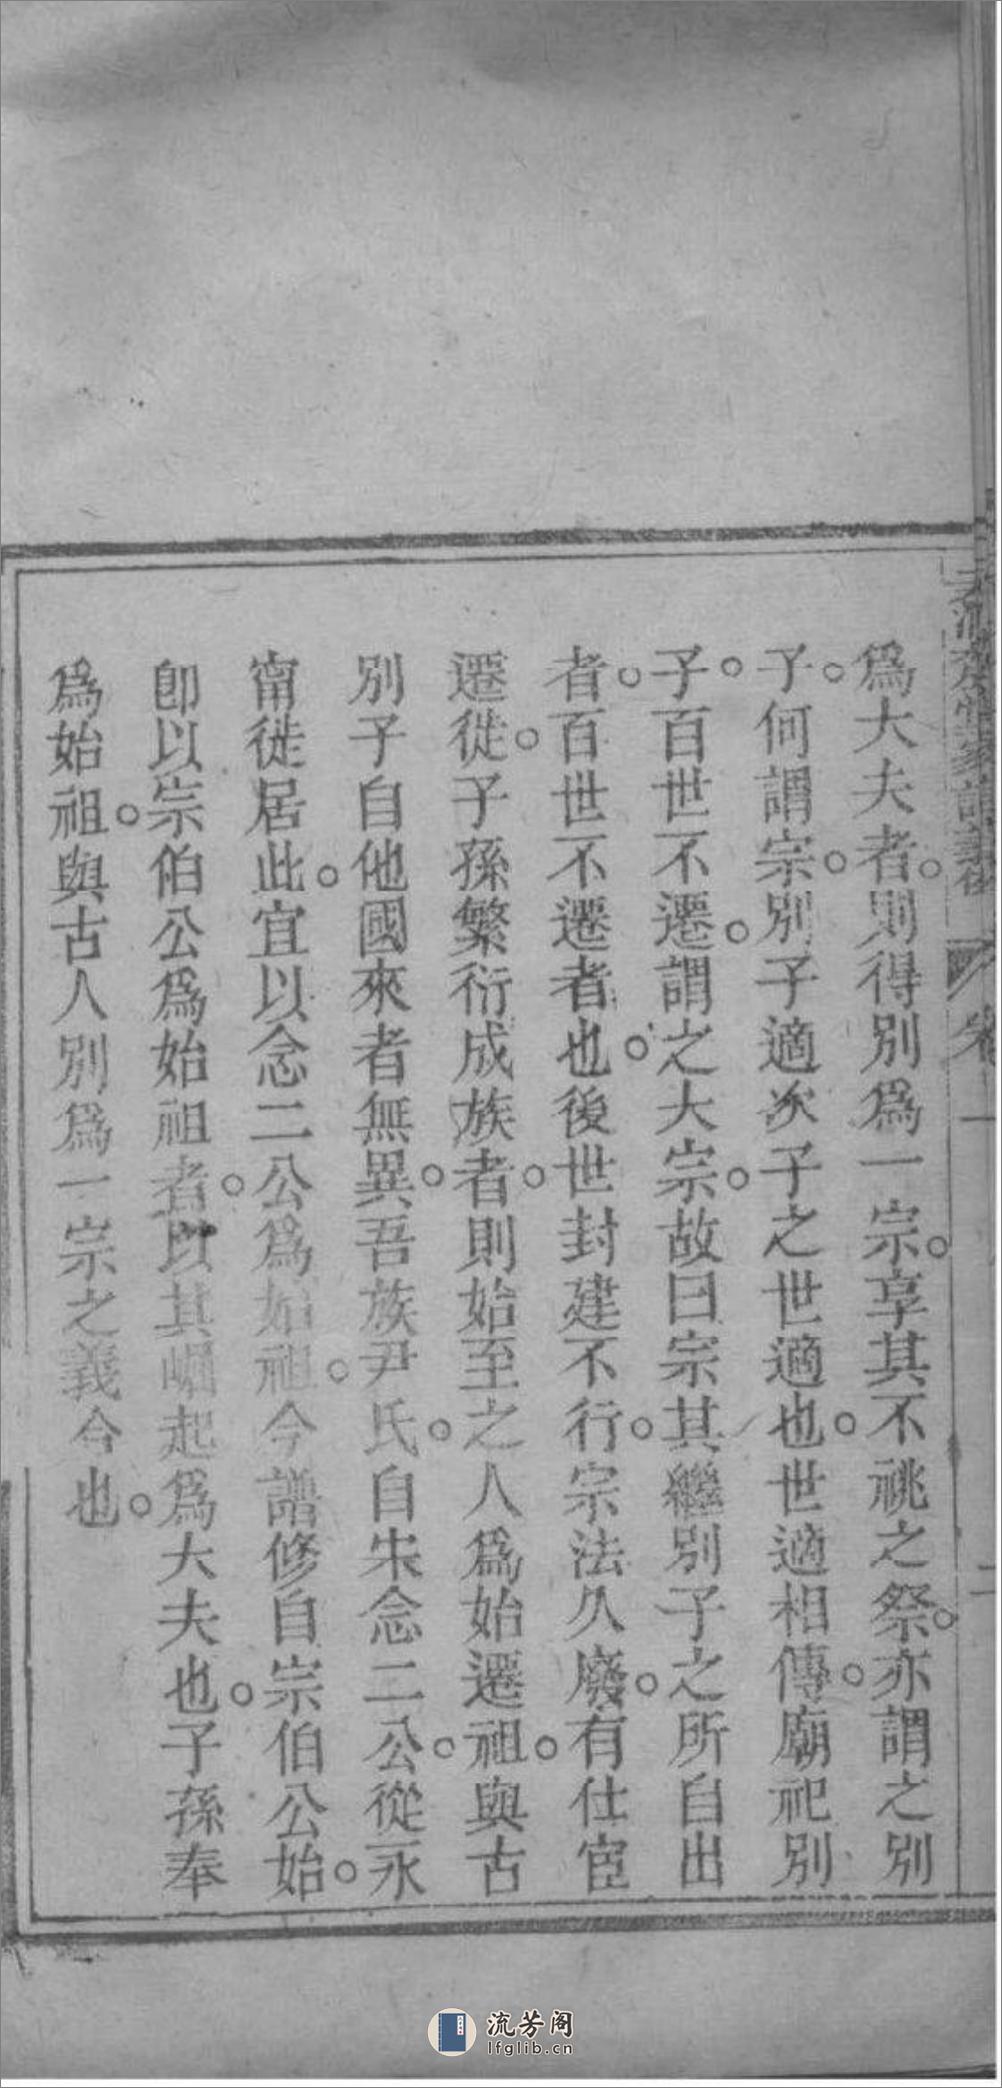 爲大夫者。則得別爲一宗。享其不祧之祭。亦謂之別
子。何謂宗。別子適次子之世適也。世適相傳。廟祀別
子。百世不遷。謂之大宗。故曰宗其繼別子之所自出
者。百世不遷者也。後世封建不行。宗法久廢。有仕宦
遷徙。子孫繁衍成族者。則始至之人爲始遷祖。與古
別子自他國來者無異。吾族尹氏。自宋念二公。從永
甯徙居此。宜以念二公爲始祖。今譜修自宗伯公始。
卽以宗伯公爲始祖者。以其崛起爲大夫也。子孫奉
爲始祖。與古人別爲一宗之義今也。
流芳阁
lfglib.cn